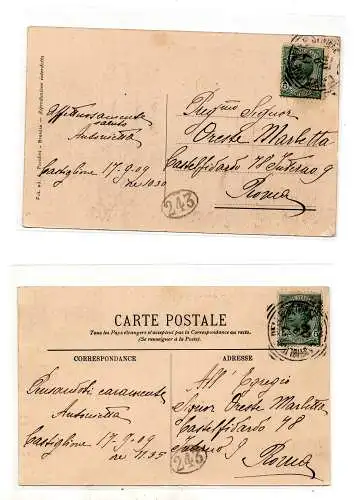 Affettuosamente
saluto
Antonietta
Castiglione 17-9-09
ore 10.30
Preg.mo Signor
Oreste Marletta
Castelfidardo 78 Interno 9
Roma
243
CARTE POSTALE
Tous les Pays étrangers n'acceptent pas la Correspondance au recto.
(Se renseigner à la Poste).
CORRESPONDANCE
ADRESSE
Pensandoti caramente
Antonietta
Castiglione 17-9-09
ore 11.35
All' Egregio
Signor Oreste Marletta
Castelfidardo 78
Interno 9
Roma
243